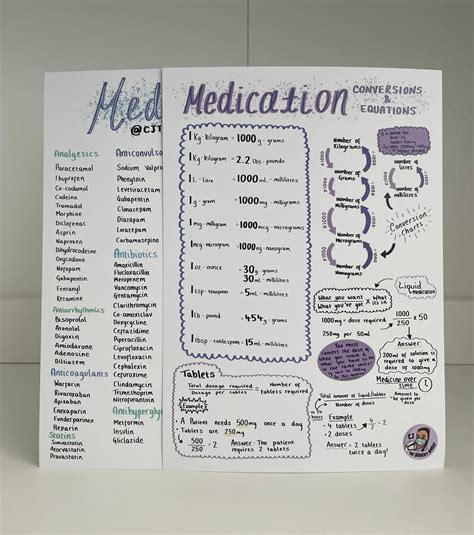 Med
@CJT
Analgesics
Paracetamol
Ibuprofen
Co-codamol
Codeine
Tramadol
Morphine
Diclofenac
Asprin
Naproxen
Dihydrocodeine
Oxycodone
Nefopam
Gabapentin
Fentanyl
Ketamine
Antiarrhythmics
Bisoprolol
Atenolol
Digoxin
Amiodarone
Adenosine
Diltiazem
Anticoagulants
Warfarin
Rivaroxaban
Apixaban
Enoxaparin
Fondaparinex
Heparin
Statins
Simvastatin
Atorvastatin
Pravastatin
Anticonvuls
Sodium Valpro
Phenytoin
Levetiracetam
Gabapentin
Clonazepam
Diazapam
Lorazepam
Carbamazepine
Antibiotics
Amoxicillin
Flucloxacillin
Meropenem
Vancomycin
Gentamycin
Clarithromycin
Co-amoxiclav
Doxycycline
Ceftazidime
Piperacillin
Ciprofloxacin
Levofloxacin
Cephalexin
Cefuroxime
Clindamycin
Trimethoprim
Nitrofurantoin
Antihyperglyc
Metformin
Insulin
Gliclazide
Medication
CONVERSIONS
&
EQUATIONS
1 Kg - kilogram = 1000 g - grams
1 Kg - kilogram = 2.2 lbs - pounds
1 L - litre = 1000 mL - millilitres
1 g - gram = 1000 mg - milligrams
1 mg - milligram = 1000 mcg - micrograms
1 mcg - microgram = 1000 ng - nanogram
1 oz - ounce = 30 g - grams
30 mL - millilitres
1 tsp - teaspoon = 5 mL - millilitres
1 lb - pound = 454 g - grams
1 tbsp - tablespoon = 15 mL - millilitres
Number of
Kilograms
Number of
Grams
Number of
Milligrams
Number of
Micrograms
Number of
Nanograms
Number of
Litres
Number of
Millilitres
Conversion
Charts
Liquid
medication
What you want
What you've got
x
What
it's in
1000mg = dose required
250mg per 50ml
1000
250
x 50
You must
convert the dose
of what you
want to the
same unit
200ml of solution
is required to
give a dose
of 1000mg
Medicine over
time
Total amount of liquid/tablets
Number of doses
= Amount to
be given per
dose
Example
- 4 tablets
- 2 doses
4
2
= 2
Answer = 2 tablets
twice a day!
Tablets
Total dosage required
Dosage per tablets
= Number of
tablets required
Example
- A Patient needs 500mg once a day
- Tablets are 250mg
500
250
= 2
Answer: The patient
requires 2 tablets